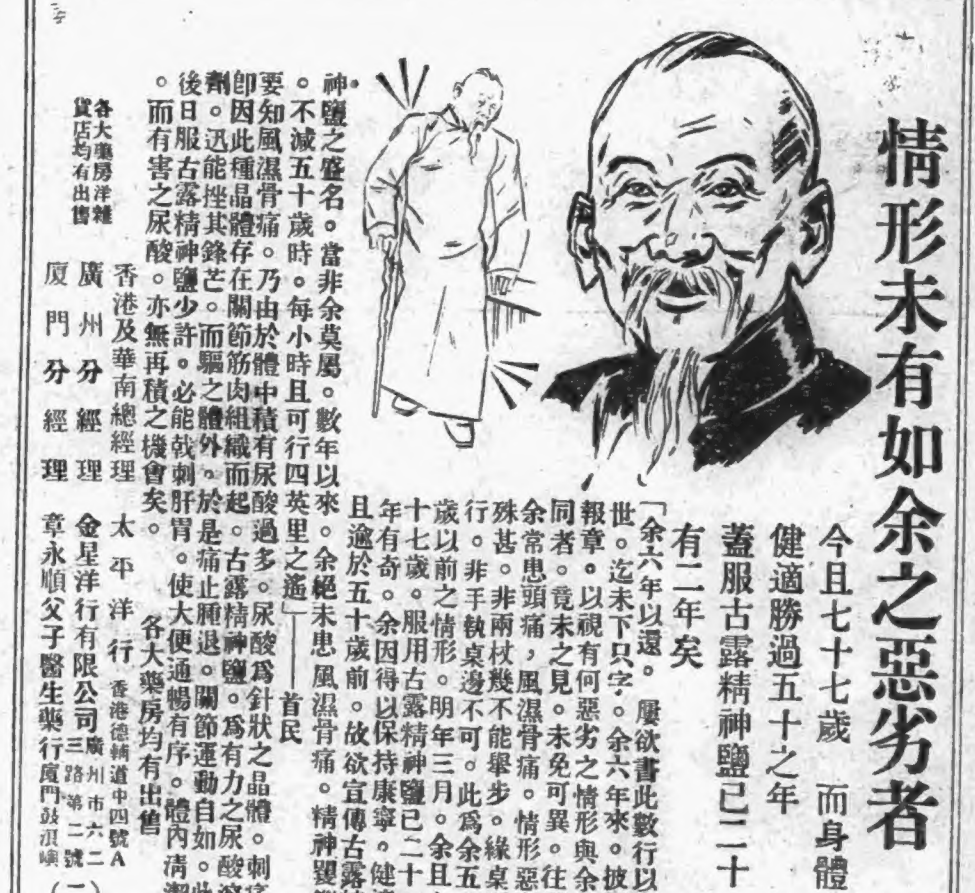 情形未有如余之惡劣者
今且七十七歲 而身體
健適勝過五十之年
蓋服古露精神鹽已二十
有二年矣
「余六年以還。屢欲書此數行以
世。迄未下只字。余六年來。披
報章。以視有何惡劣之情形與余
同者。竟未之見。未免可異。往
余常患頭痛，風濕骨痛。情形惡
殊甚。非兩杖幾不能舉步。緣桌
行。非手執桌邊不可。此爲余五
歲以前之情形。明年三月。余且
十七歲。服用古露精神鹽已二十
年有奇。余因得以保持康寧。健
且逾於五十歲前。故欲宣傳古露
神鹽之盛名。當非余莫屬。數年以來。余絕未患風濕骨痛。精神
。不減五十歲時。每小時且可行四英里之遙」——首民
要知風濕骨痛。乃由於體中積有尿酸過多。尿酸爲針狀之晶體。刺
卽因此種晶體存在關節筋肉組織而起。古露精神鹽。爲有力之尿酸
劑。迅能挫其鋒芒。而驅之體外。於是痛止腫退。關節運動自如。
後日服古露精神鹽少許。必能戟刺肝胃。使大便通暢有序。體內清
。而有害之尿酸。亦無再積之機會矣。 各大藥房均有出售
各大藥房洋雜
貨店均有出售
香港及華南總經理 太平洋行 香港德輔道中四號A
廣州分經理 金星洋行有限公司 廣州市六二三路第二號
廈門分經理 章永順父子醫生藥行 廈門鼓浪嶼